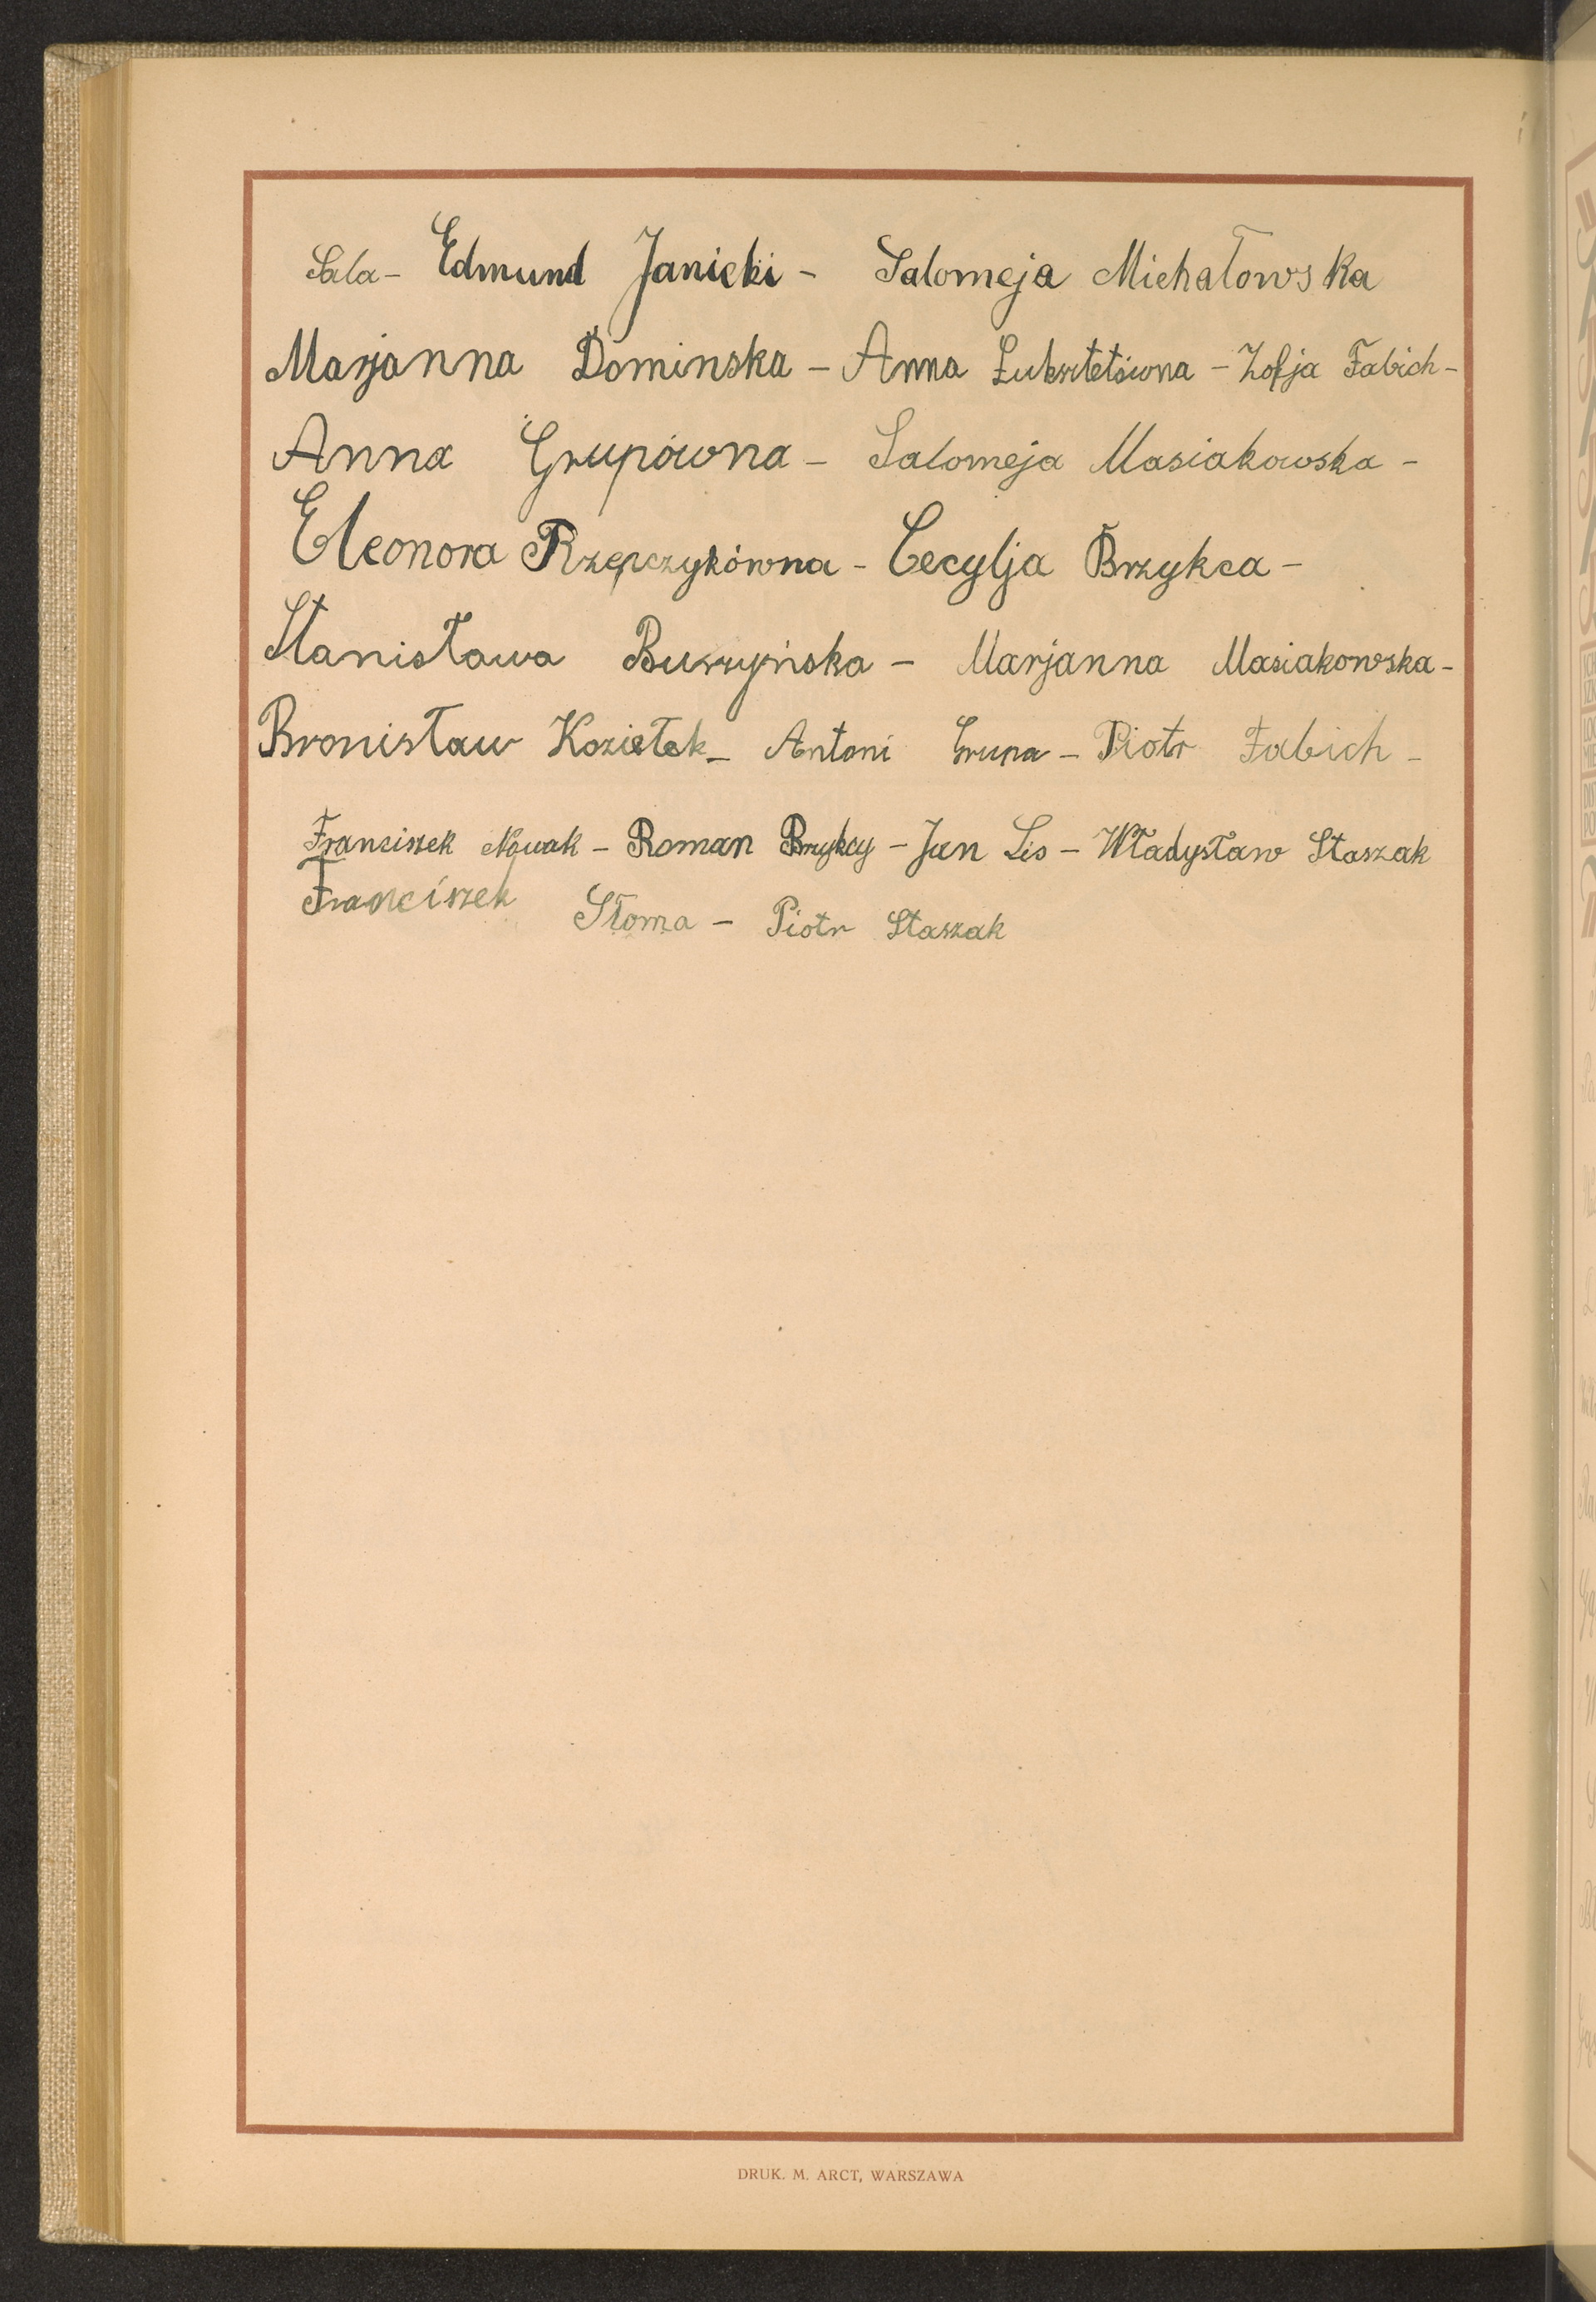 Sala - Edmund Janicki - Salomeja Michałowska
Marjanna Dominska - Anna - Zofja Fabich -
Anna Grupówna - Salomeja Masiakowska -
Eleonora Rzepczykówna - Cecylja Brzykca -
Stanisława Buszyńska - Marjanna Masiakowska -
Bronisław Roziełek - Antoni Grupa - Piotr Fabich -
Franciszek Nowak - Roman Brzykcy - Jan Lis - Władysław Staszak
Franciszek Słoma - Piotr Staszak
DRUK. M. ARCT, WARSZAWA